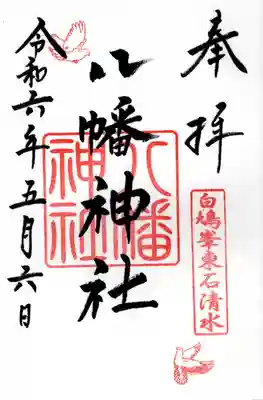 奉拝
白鳩峯東石清水
八幡神社
八幡神社
令和六年五月六日